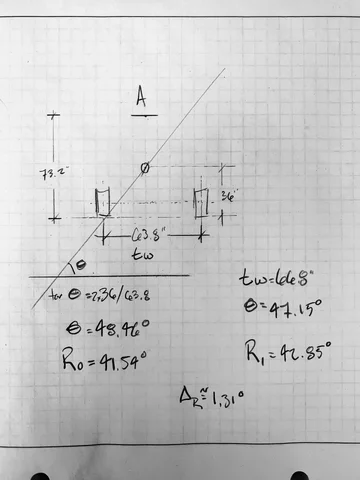 A
73.2"
Φ
36"
63.8"
tw
θ
tan θ = 2·36/63.8
θ = 48.46°
R₀ = 41.54°
tw = 66.8"
θ = 47.15°
R₁ = 42.85°
Δ_R ≈ 1.31°